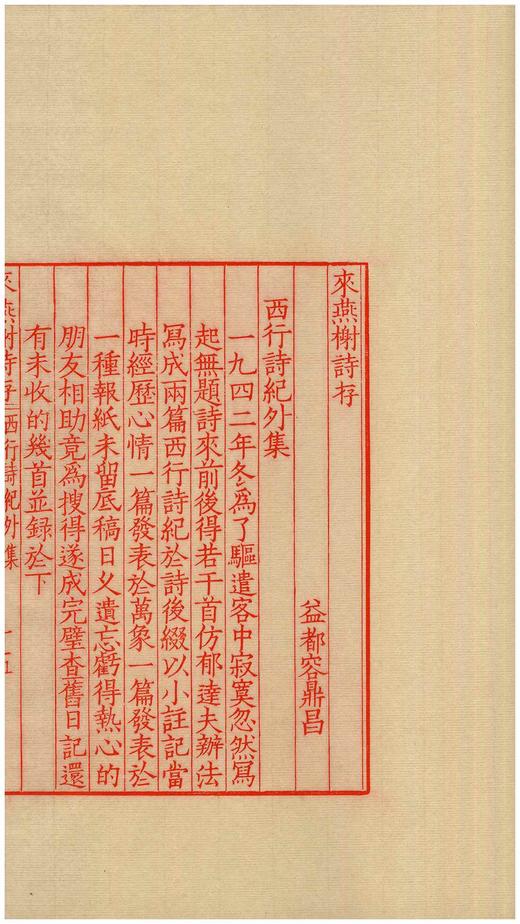 來燕榭詩存
益都容鼎昌
西行詩紀外集
一九四二年冬爲了驅遣客中寂寞忽然寫
起無題詩來前後得若干首仿郁達夫辦法
寫成兩篇西行詩紀於詩後綴以小註記當
時經歷心情一篇發表於萬象一篇發表於
一種報紙未留底稿日久遺忘虧得熱心的
朋友相助竟爲搜得遂成完璧查舊日記還
有未收的幾首並録於下
來燕榭詩存 西行詩紀外集 一